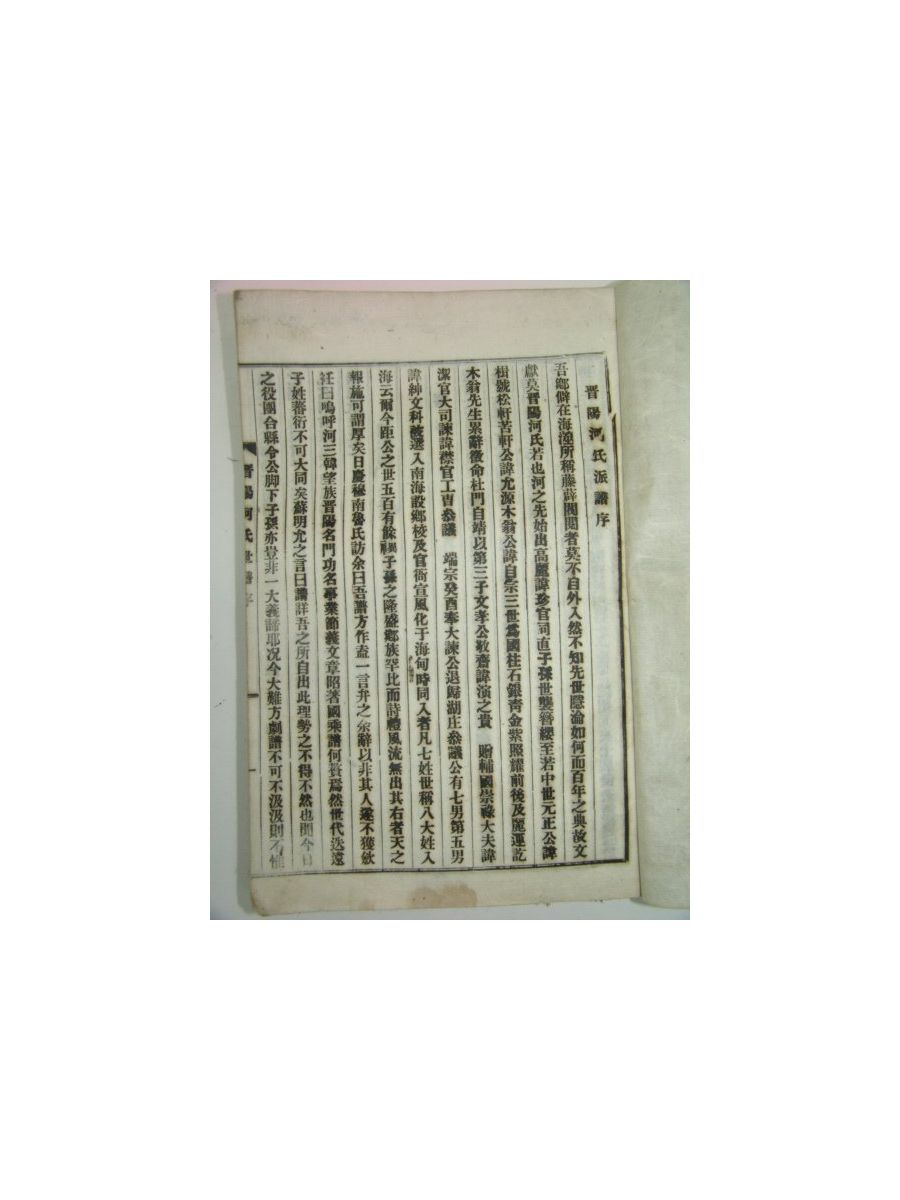 晋陽河氏派譜序
吾鄕僻在海澨所稱藤薜閥閱者莫不自外入然不知先世隱淪如何而百年之典故文
獻莫晋陽河氏若也河之先始出高麗諱珍官司直子孫世襲簪纓至若中世元正公諱
楫號松軒苦軒公諱允源木翁公諱自宗三世爲國柱石銀靑金紫照耀前後及麗運訖
木翁先生累辭徵命杜門自靖以第三子文孝公敬齋諱演之貴 贈輔國崇祿大夫諱
潔官大司諫諱襟官工曹叅議 端宗癸酉奉大諫公退歸湖庄叅議公有七男第五男
諱紳文科被選入南海設鄕校及官衙宣風化于海甸時同入者凡七姓世稱八大姓入
海云爾今距公之世五百有餘禩子孫之隆盛鄕族罕比而詩禮風流無出其右者天之
報施可謂厚矣日慶穆南魯氏訪余曰吾譜方作盍一言弁之余辭以非其人遂不獲歛
衽曰嗚呼河三韓望族晋陽名門功名事業節義文章昭著國乘譜何贅焉然世代迭遠
子姓蕃衍不可大同矣蘇明允之言曰譜詳吾之所自出此理勢之不得不然也聞今日
之役團合縣令公脚下子孫亦豈非一大義諦耶况今大難方劇譜不可不汲汲則不惟
晋陽河氏世譜 序 一